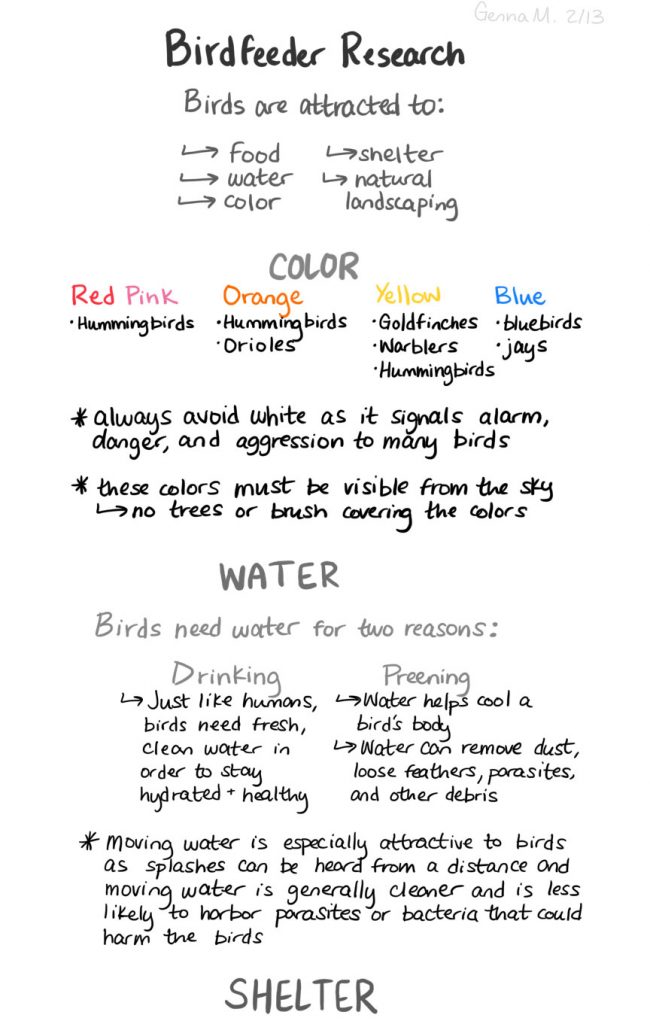 Genna M. 2/13
Birdfeeder Research
Birds are attracted to:
↳ food
↳ water
↳ color
↳ shelter
↳ natural
landscaping
COLOR
Red Pink
• Hummingbirds
Orange
• Hummingbirds
• Orioles
Yellow
• Goldfinches
• Warblers
• Hummingbirds
Blue
• bluebirds
• jays
* always avoid white as it signals alarm,
danger, and aggression to many birds
* these colors must be visible from the sky
↳ no trees or brush covering the colors
WATER
Birds need water for two reasons:
Drinking
↳ Just like humans,
birds need fresh,
clean water in
order to stay
hydrated + healthy
Preening
↳ Water helps cool a
bird's body
↳ Water can remove dust,
loose feathers, parasites,
and other debris
* Moving water is especially attractive to birds
as splashes can be heard from a distance and
moving water is generally cleaner and is less
likely to harbor parasites or bacteria that could
harm the birds
SHELTER